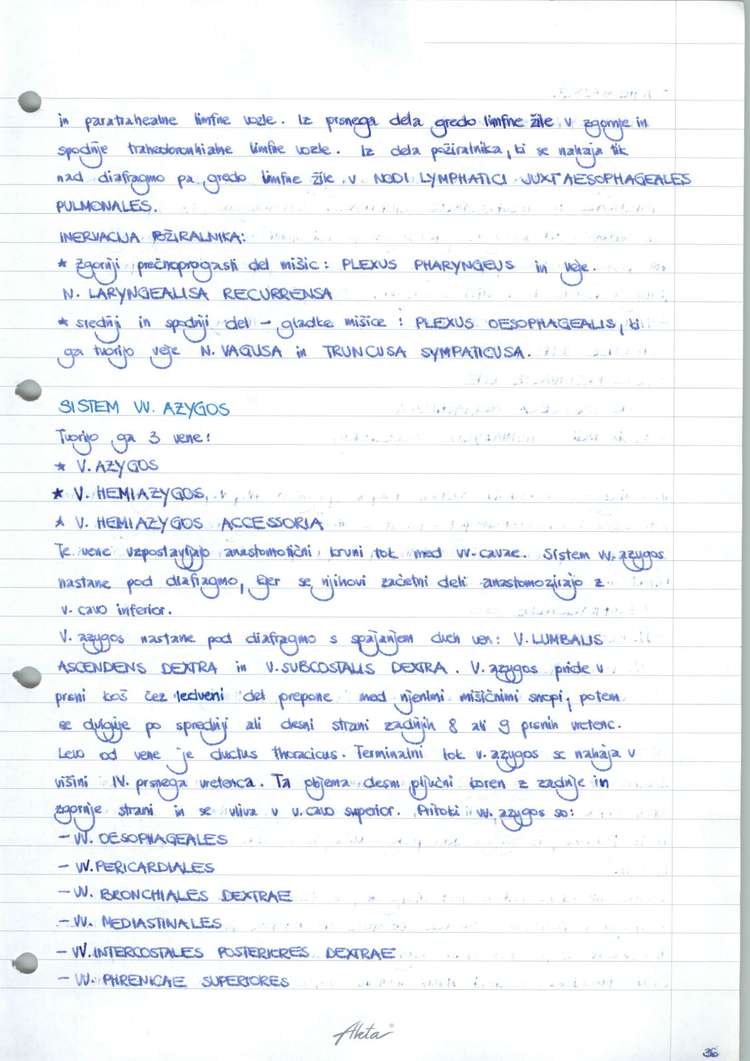 in paratrahealne limfne vozle. Iz prsnega dela gredo limfne žile v zgornje in
spodnje traheobronhialne limfne vozle. Iz dela požiralnika, ki se nahaja tik
nad diafragmo pa gredo limfne žile v NODI LYMPHATICI JUXTAESOPHAGEALES
PULMONALES.
INERVACIJA POŽIRALNIKA:
* zgornji prečnoprogasti del mišic: PLEXUS PHARYNGEUS in veje
N. LARYNGEALISA RECURRENSA
* srednji in spodnji del - gladke mišice: PLEXUS OESOPHAGEALIS, ki
ga tvorijo veje N. VAGUSA in TRUNCUSA SYMPATICUSA.
SISTEM VV. AZYGOS
Tvorijo ga 3 vene:
* V. AZYGOS
* V. HEMIAZYGOS
* V. HEMIAZYGOS ACCESSORIA
Te vene vzpostavljajo anastomotični krvni tok med vv. cavae. Sistem vv. azygos
nastane pod diafragmo, kjer se njihovi začetni deli anastomozirajo z
v. cavo inferior.
V. azygos nastane pod diafragmo s spajanjem dveh ven: V. LUMBALIS
ASCENDENS DEXTRA in V. SUBCOSTALIS DEXTRA. V. azygos pride v
prsni koš čez ledveni del prepone med njenimi mišičnimi snopi, potem
se dviguje po sprednji ali desni strani zadnjih 8 ali 9 prsnih vretenc.
Levo od vene je ductus thoracicus. Terminalni tok v. azygos se nahaja v
višini IV. prsnega vretenca. Ta objema desni pljučni koren z zadnje in
zgornje strani in se vliva v v. cavo superior. Pritoki vv. azygos so:
- VV. OESOPHAGEALES
- VV. PERICARDIALES
- VV. BRONCHIALES DEXTRAE
- VV. MEDIASTINALES
- VV. INTERCOSTALES POSTERIORES DEXTRAE
- VV. PHRENICAE SUPERIORES
Akta
36